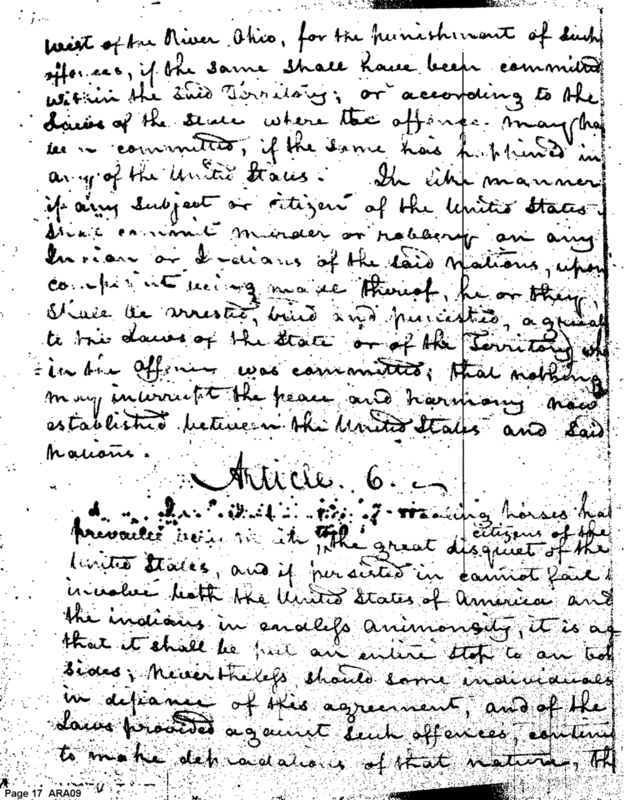 west of the River Ohio, for the punishment of such
offences, if the same shall have been committed
within the said Territory; or according to the
Laws of the state where the offence may ha
been committed, if the same has happened in
any of the United States. In like manner
if any subject or citizen of the United States
shall commit murder or robbery on any
Indian or Indians of the said nations, upon
complaint being made thereof, he or they,
shall be arrested, tried and punished, agreeab
to the Laws of the State or of the Territory whe
in the offence was committed; that nothing
may interrupt the peace and harmony now
established between the United States and said
nations.
Article. 6.
stealing horses has
prevailed the great disquiet of the citizens of the
United States, and if persisted in cannot fail t
involve both the United States of America and
the indians in endless animonsity, it is ag
that it shall be put an entire stop to on bot
sides; Nevertheless should some individuals
in defiance of this agreement, and of the
Laws provided against such offences, continu
to make depradations of that nature, th
Page 17 ARA09